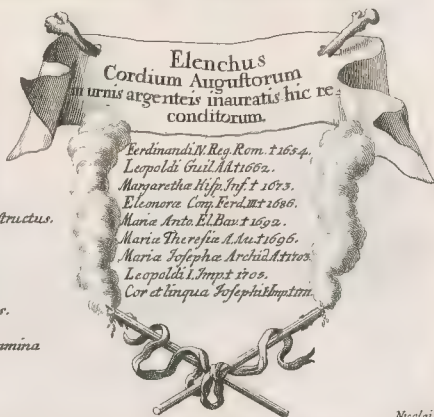 Elenchus
Cordium Auguſtorum
in urnis argenteis inauratis hic re-
conditorum.
Ferdinandi IV. Reg. Rom. † 1654.
Leopoldi Guil. AA † 1662.
Margarethæ Hiſp. Inf. † 1673.
Eleonoræ Conj. Ferd. III † 1686.
ſtructus.
Mariæ Anto. El. Bav. † 1692.
Mariæ Thereſiæ A. Au. † 1696.
Mariæ Joſephæ Archid. A. † 1703.
Leopoldi I. Imp. † 1705.
Cor et lingua Joſephi I. Imp. † 1711.
s.
mina
Nicolai